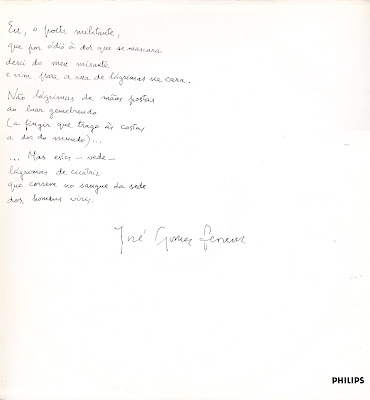 Eu, o poeta militante,
que por ódio à dor que se mascara
desci do meu mirante
e vim para a rua de lágrimas na cara.
Não lágrimas de mãos postas
ao luar gemebundo
(a fingir que trago às costas
a dor do mundo)...
... Mas estas — vede —
lágrimas de cicatriz
que correm no sangue da sede
dos homens vivos.
José Gomes Ferreira
PHILIPS